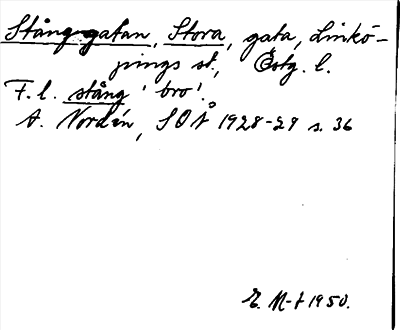 Stånggatan, Stora, gata, Linkö-
pings st., Östg. l.
F. l. stång 'bro'.
A. Nordén, SOÅ 1928-29 s. 36
E. M-t 1950.